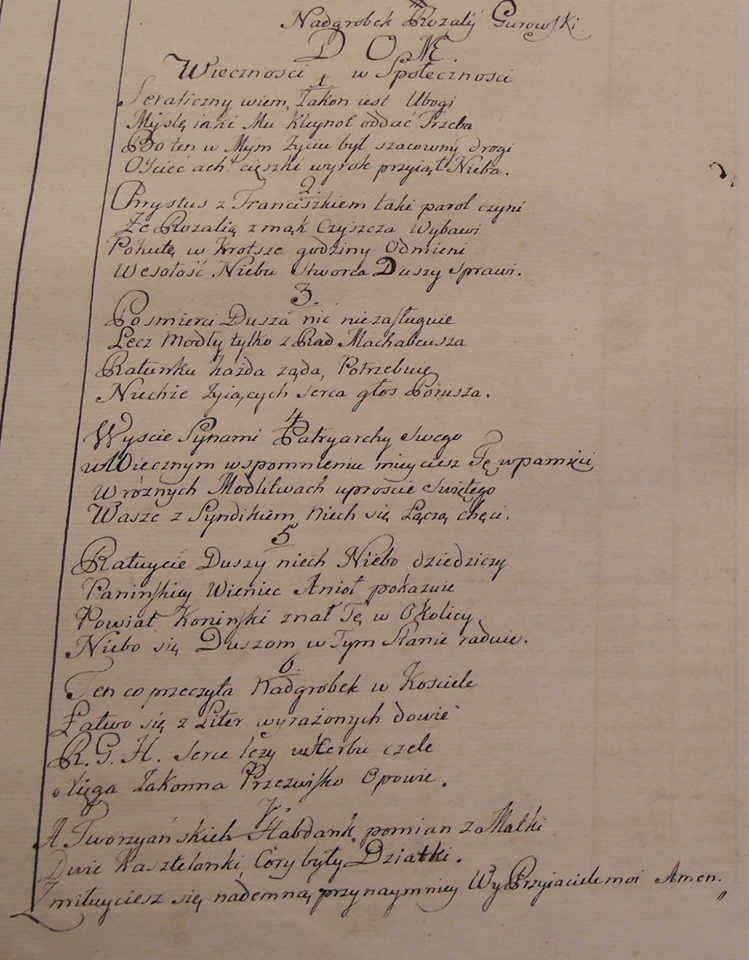 Nadgrobek Rozalÿ Gurowski.
D O M.
Wiecznosci w Społecznosci
1
Seraficzny wiem, Zakon iest Ubogi
Myslę iaki Mu Kleynot oddać Trzeba
Bo ten w Mym Zyciu był szacowny drogi
OYciec ach! cięszki wyrok przyiął z Nieba.
2.
Chrystus z Franciszkiem taki parol czyni
Ze Rozalię z mąk Czyszcza Wybawi
Pokutę w Krotsze godziny Odmieni
Wesołość Niebu Stworca Duszy sprawi.
3.
Po smierci Dusza nic niezasługuie
Lecz Modły tylko z Rad Machabeusza
Ratunku każda ząda, Potrzebuię
Niechże zyiących serca głos Porusza.
4
Wyscie Synami Patryarchy Swego
w Wiecznym wspomnieniu mieyciesz Tę w pamięci
W róznych Modlitwach uproscie Swiętego
Wasze z Syndikiem niech się Łączą chęci.
5
Ratuycie Duszy niech Niebo dziedziczy
Paninskiey Wieniec Anioł pokazuie
Powiat Koninski znał Tę w Okolicy
Niebo się Duszom w Tym Stanie raduie.
6.
Ten co przeczyta Nadgrobek w Kosciele
Łatwo się z Liter wyrażonych dowie
R. G. H. serce lezy w Herbu czele
Xięga Zakonna Przezwisko Opowie.
7.
A Tworzyańskich Habdank pomian z Matki
Dwie Kasztelanki Cory były Dziatki.
Zmiłuyciesz się nademną przynaymniey Wy Przyiaciele moi Amen.